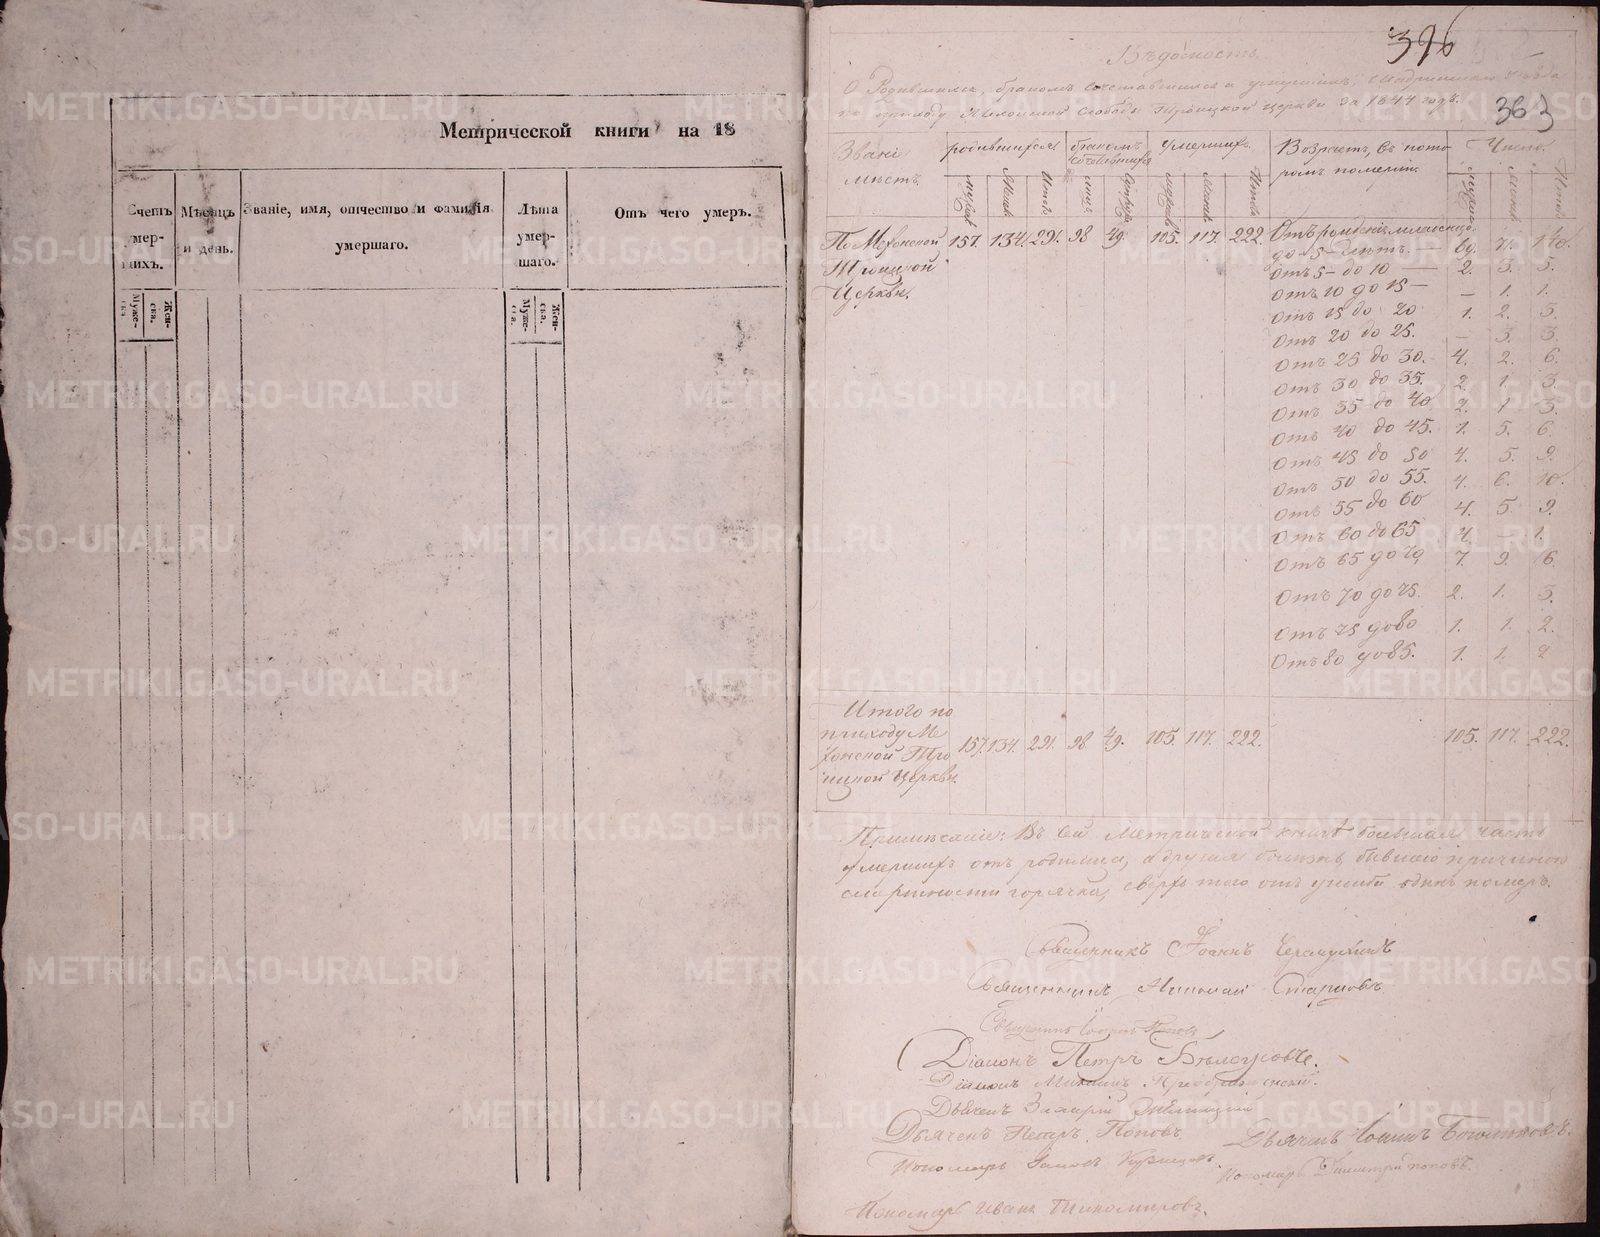 Метрической книги на 18
Счетъ
умер-
шихъ.
Мѣсяцъ
и день.
Званіе, имя, отчество и фамилія
умершаго.
Лѣта
умер-
шаго.
Отъ чего умеръ.
Муже-
ска.
Жен-
ска.
Муже-
ска.
Жен-
ска.
396
363
Вѣдомость
О Родившихся, бракомъ сочетавшихся и умершихъ
по приходу Слободы Троицкой церкви за 1844 годъ.
Званіе
мѣстъ.
родившихся
бракомъ
сочетавшихся
умершихъ
Возрастъ, въ кото
ромъ померли.
Число
По Мехонской 157. 134. 291. 98 49. 105. 117. 222.
Троицкой
Церкви.
Отъ рожденія младенцо.
до 5 – лѣтъ. — 69. 71. 140.
Отъ 5 – до 10 — 2. 3. 5.
Отъ 10 до 15 — – 1. 1.
Отъ 15 до 20 1. 2. 3.
Отъ 20 до 25. – 3. 3.
Отъ 25 до 30. 4. 2. 6.
Отъ 30 до 35. 2. 1. 3.
Отъ 35 до 40 2. 1 3.
Отъ 40 до 45. 1. 5. 6.
Отъ 45 до 50 4. 5. 9.
Отъ 50 до 55. 4. 6. 10.
Отъ 55 до 60 4. 5. 9.
Отъ 60 до 65
Отъ 65 до 70, 7. 9. 16.
Отъ 70 до 75. 2. 1. 3.
Отъ 75 до 80 1. 1. 2.
Отъ 80 до 85. 1. 1. 2
Итого по
приходу Ме
хонской Тро
ицкой Церкви. 157. 134. 291. 98 49. 105. 117. 222. 105. 117. 222.
Примѣчаніе: Въ сей Метрической книгѣ большая часть
умершихъ отъ родимца, а другая болѣзнь бывшею причиною
смертности горячка, сверхъ того отъ ушиба одинъ померъ.
Священникъ Іоаннъ
Священникъ Николай Старцовъ
Священникъ Попов
Діаконъ Петръ
Діаконъ Михаилъ Преображенскій.
Дьячекъ Захарій
Дьячекъ Петръ Поповъ
Дьячекъ Іоаннъ
Пономарь Кузнецовъ.
Пономарь Димитрій Поповъ.
Пономарь Иванъ Тихомировъ.
METRIKI.GASO-URAL.RU